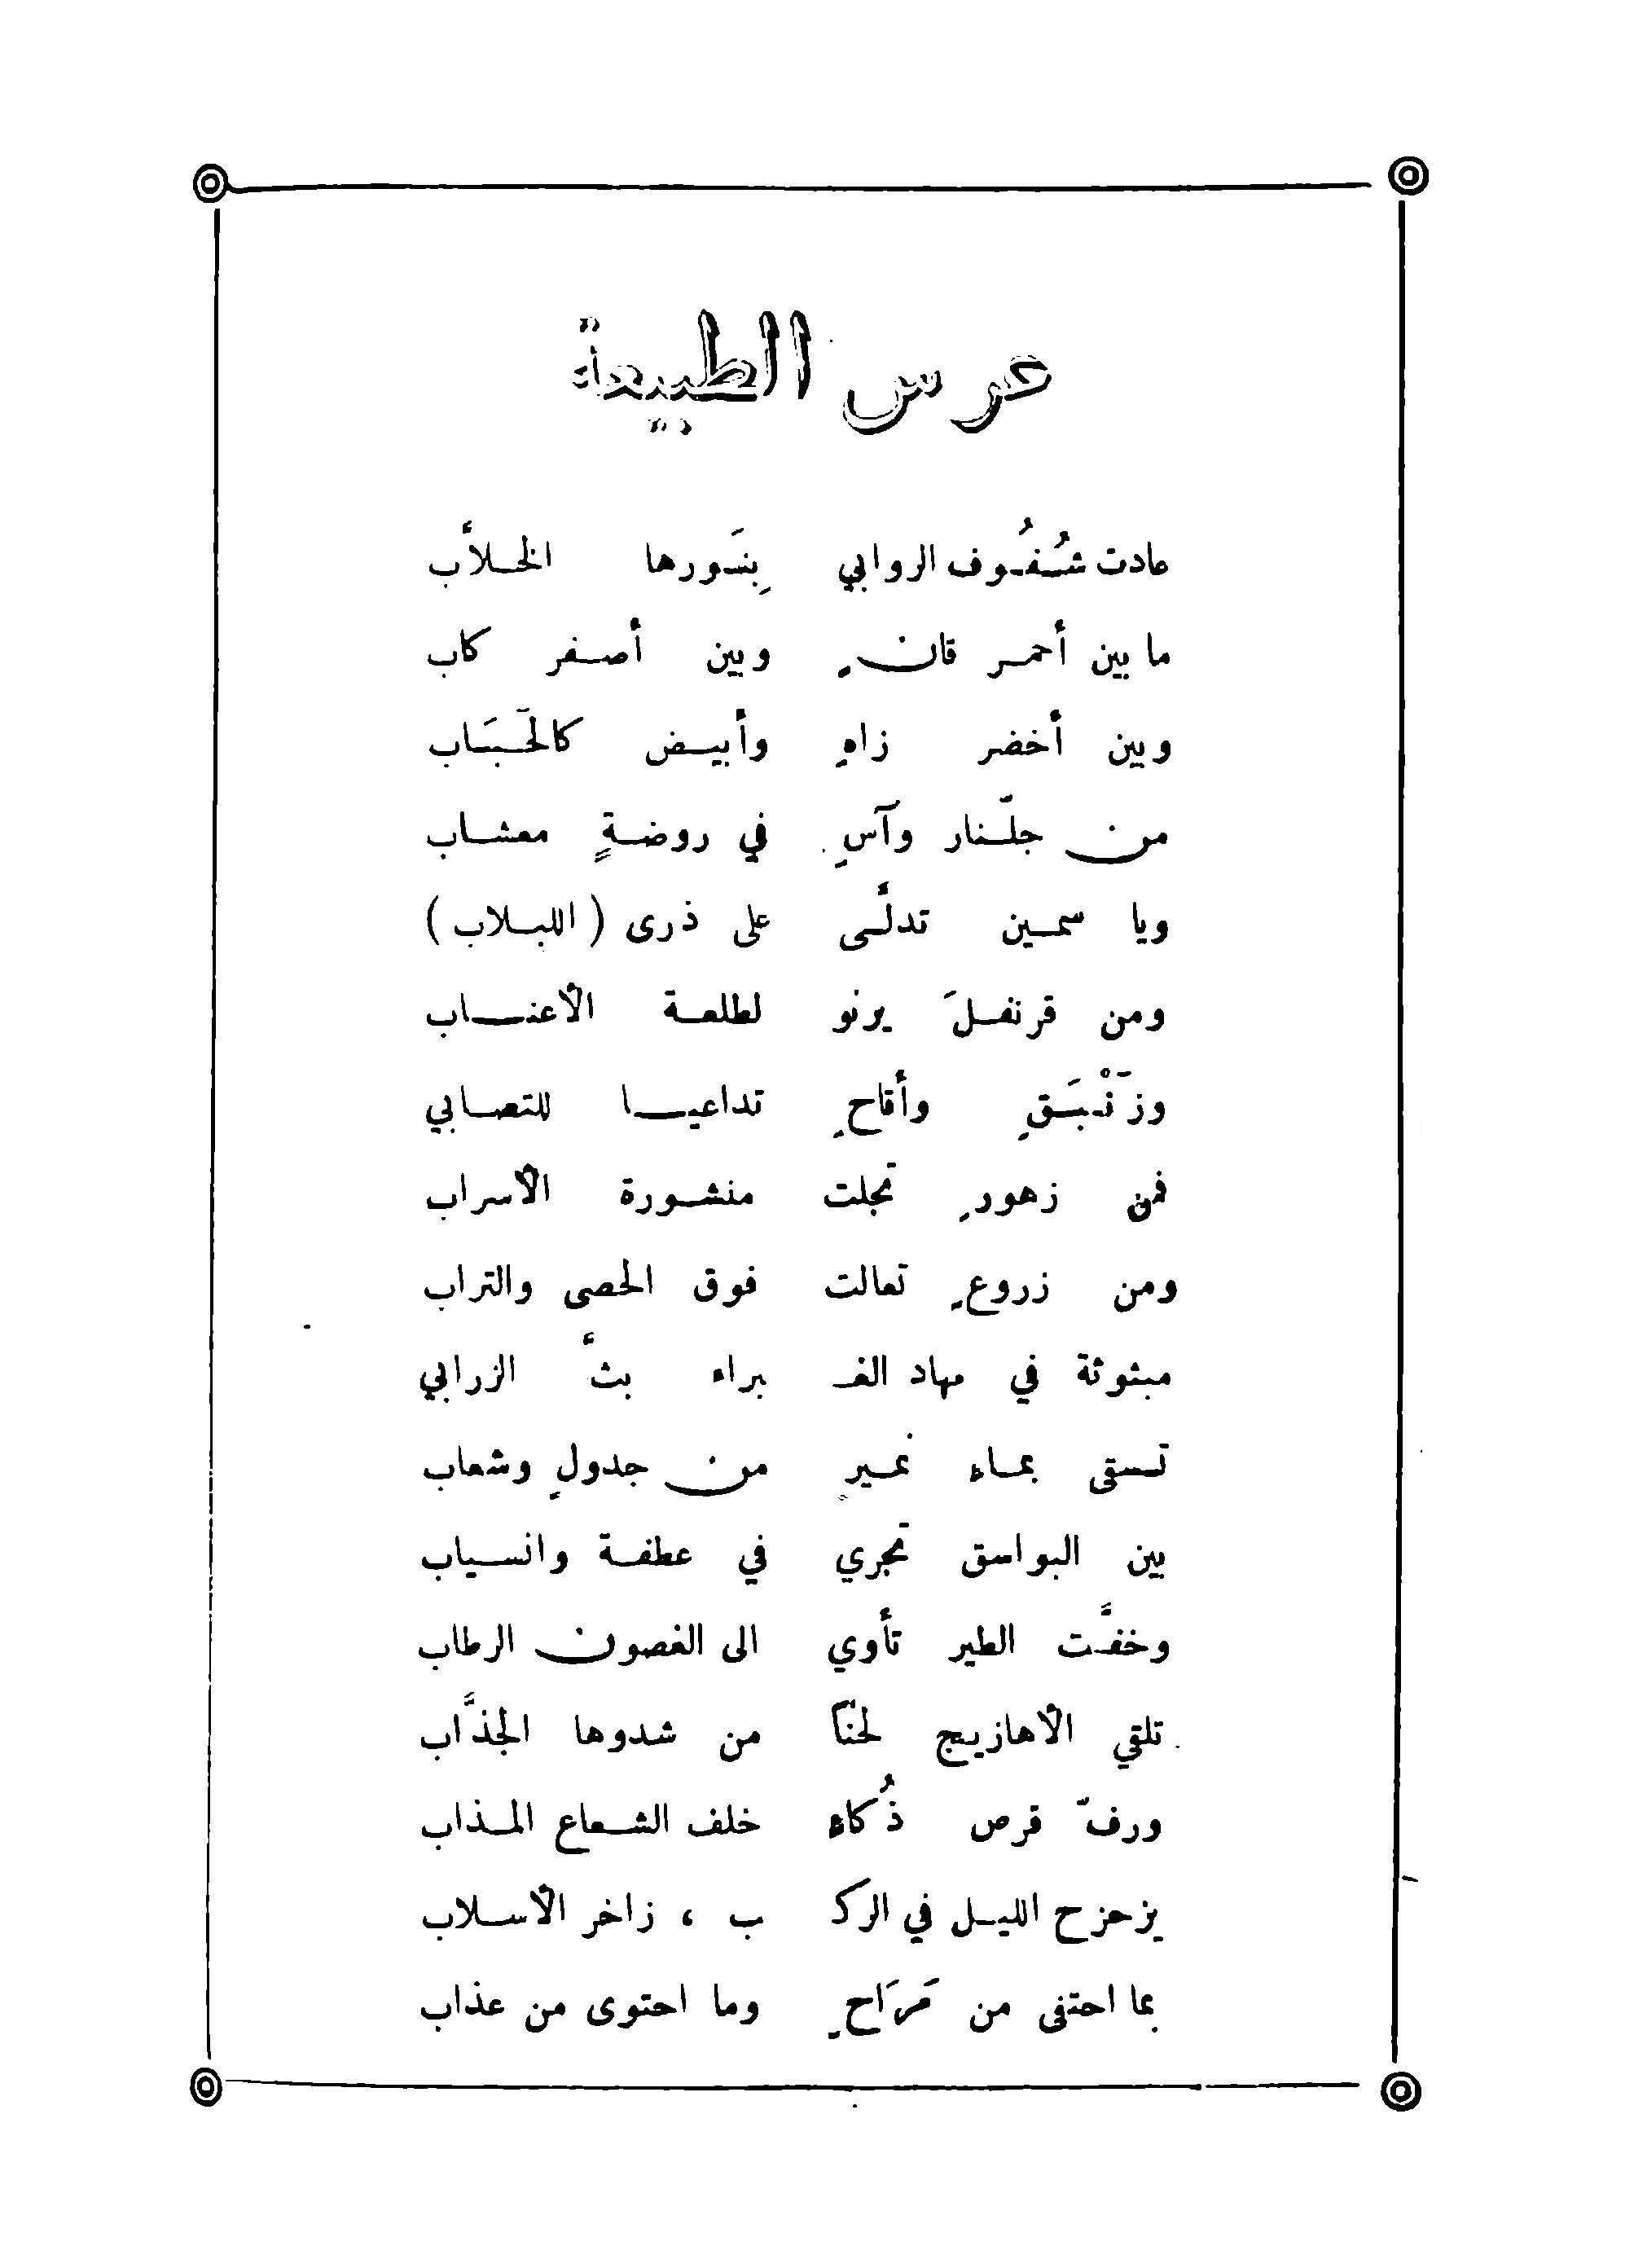 عرس الطبيعة
عادت شُفُوف الروابي بِنَورها الخلاَّب
ما بين أحمر قانٍ وبين أصفر كاب
وبين أخضر زاهٍ وأبيض كالحَبَاب
من جلّنار وآسٍ في روضةٍ معشاب
ويا سمين تدلَّى على ذرى ( اللبلاب )
ومن قرنفلَ يرنو لطلعة الأعناب
وزَنْبَقٍ وأقاحٍ تداعيا للتصابي
فمن زهورٍ تجلت منشورة الأسراب
ومن زروعٍ تعالت فوق الحصى والتراب
مبثوثة في مهاد الغـ ـبراء بثَّ الزرابي
تسقى بماءٍ نميرٍ من جدولٍ وشعاب
بين البواسق تجري في عطفة وانسياب
وخفَّت الطير تأوي الى الغصون الرطاب
تلقي الأهازيج لحنًا من شدوها الجذَّاب
ورفّ قرص ذُكاءٍ خلف الشعاع المذاب
يزحزح الليل في الركـ ـب ، زاخر الأسلاب
بما احتفى من مَرَاحٍ وما احتوى من عذاب